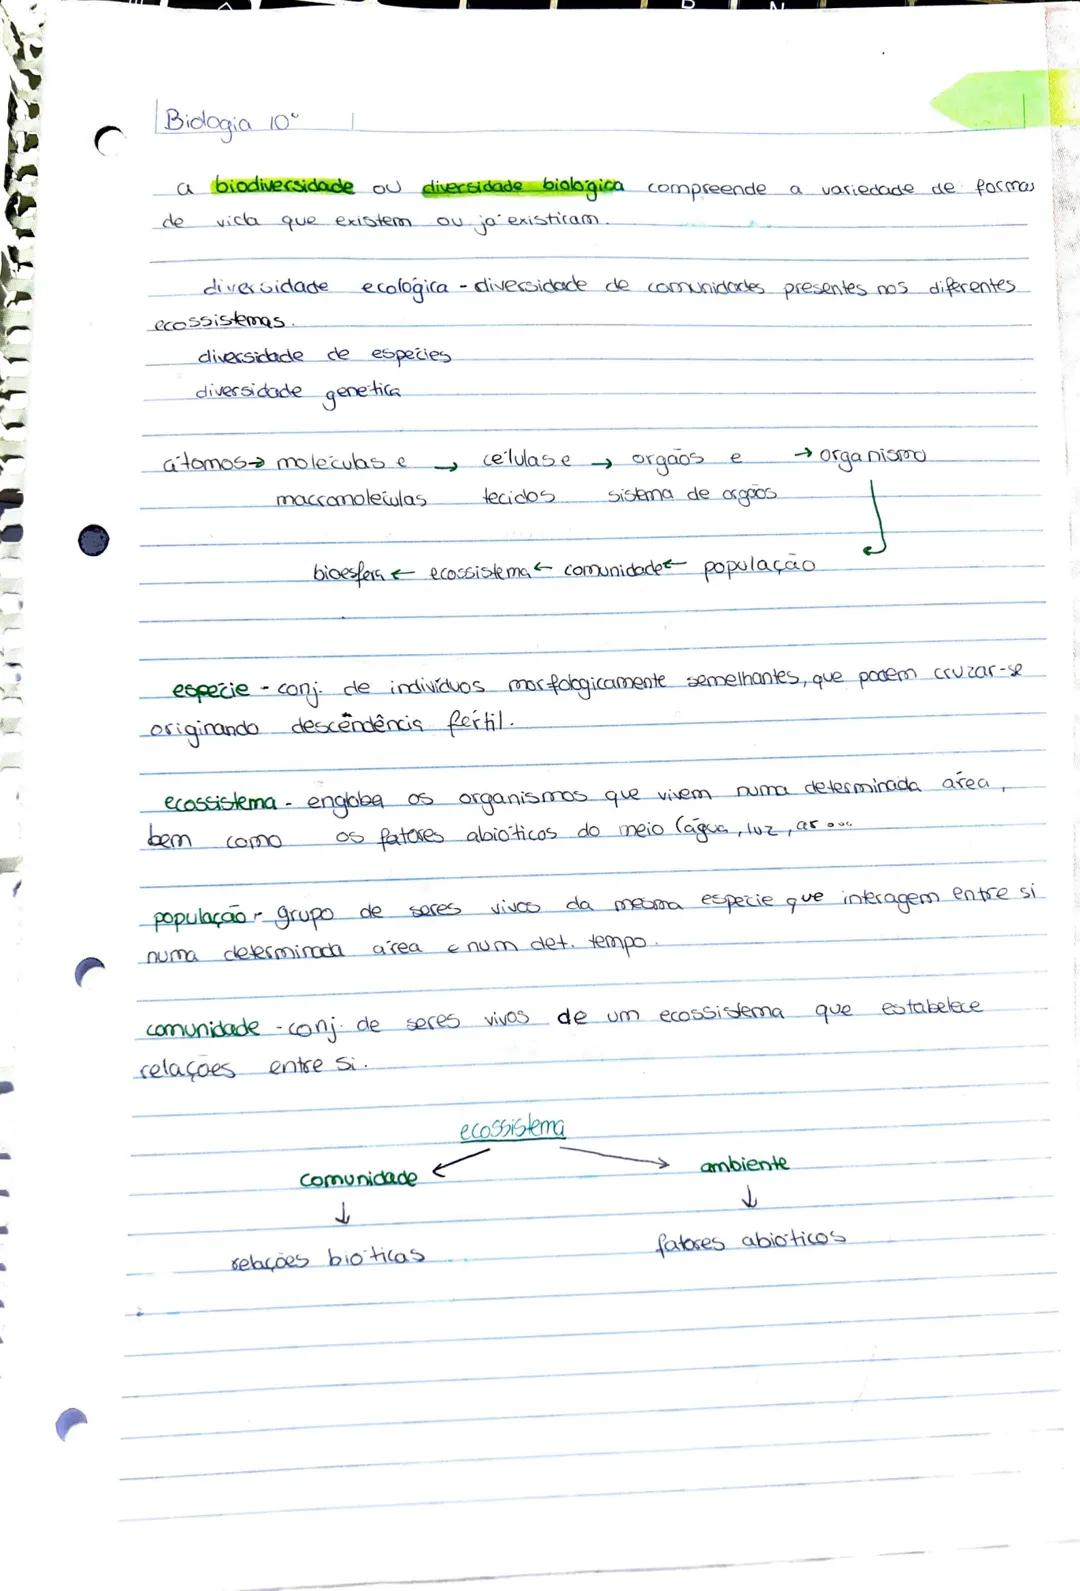 Biologia 10º
a biodiversidade ou diversidade biológica compreende a variedade de formas
de vida que existem ou já existiram.
diversidade ecológica - diversidade de comunidades presentes nos diferentes
ecossistemas.
diversidade de espécies
diversidade genética
átomos → moléculas e → células e → orgãos e → organismo
macromoléculas tecidos sistema de orgãos
bioesfera ← ecossistema ← comunidade ← população
espécie - conj. de indivíduos morfologicamente semelhantes, que podem cruzar-se
originando descendência fértil.
ecossistema - engloba os organismos que vivem numa determinada área,
bem como os fatores abióticos do meio (água, luz, ar ...
população - grupo de seres vivos da mesma espécie que interagem entre si
numa determinada área e num det. tempo.
comunidade - conj. de seres vivos de um ecossistema que estabelece
relações entre si.
ecossistema
comunidade ← → ambiente
↓ ↓
relações bióticas fatores abióticos